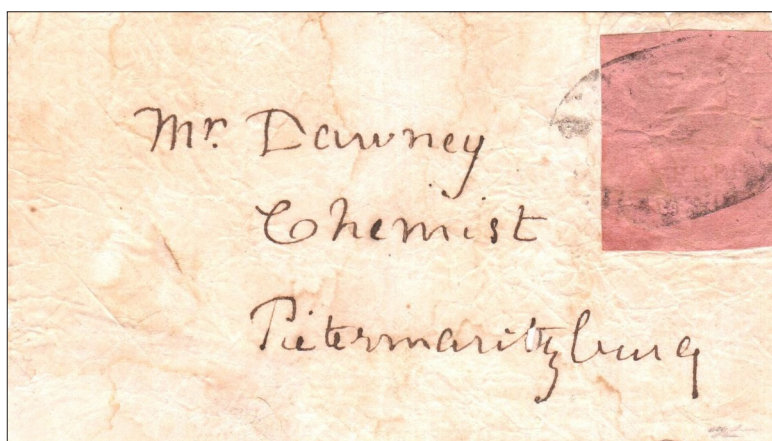 Mr. Dawney
Chemist
Pietermaritzburg